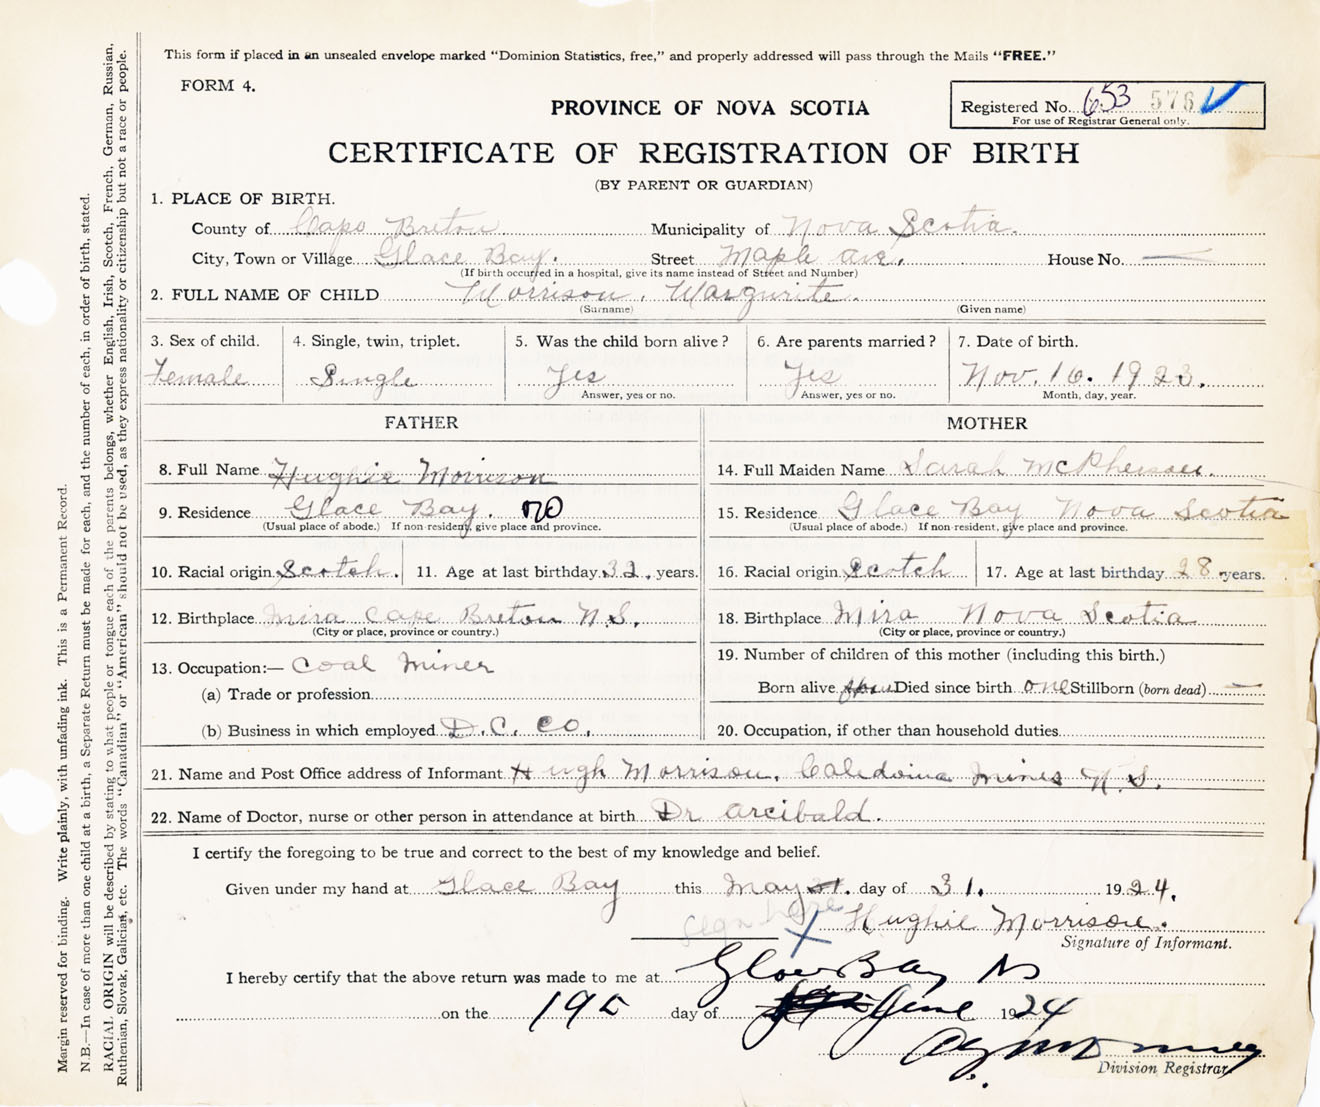 This form if placed in an unsealed envelope marked “Dominion Statistics, free,” and properly addressed will pass through the Mails “FREE.”
FORM 4.
Registered No. 653 576
For use of Registrar General only.
PROVINCE OF NOVA SCOTIA
CERTIFICATE OF REGISTRATION OF BIRTH
(BY PARENT OR GUARDIAN)
1. PLACE OF BIRTH.
County of Cape Breton Municipality of Nova Scotia.
City, Town or Village Glace Bay. Street Maple ave. House No. —
(If birth occurred in a hospital, give its name instead of Street and Number)
2. FULL NAME OF CHILD Morrison, Margurite.
(Surname) (Given name)
3. Sex of child. 4. Single, twin, triplet. 5. Was the child born alive? 6. Are parents married? 7. Date of birth.
Female Single Yes Yes Nov. 16. 1923.
Answer, yes or no. Answer, yes or no. Month, day, year.
FATHER MOTHER
8. Full Name Hughie Morrison 14. Full Maiden Name Sarah McPherson.
9. Residence Glace Bay. 15. Residence Glace Bay Nova Scotia
(Usual place of abode.) If non-resident, give place and province. (Usual place of abode.) If non-resident, give place and province.
10. Racial origin Scotch. 11. Age at last birthday 32. years. 16. Racial origin Scotch 17. Age at last birthday 28 years.
12. Birthplace Mira Cape Breton N.S. 18. Birthplace Mira Nova Scotia
(City or place, province or country.) (City or place, province or country.)
13. Occupation:— Coal Miner 19. Number of children of this mother (including this birth.)
(a) Trade or profession Born alive Died since birth one Stillborn (born dead) —
(b) Business in which employed D.C. Co. 20. Occupation, if other than household duties
21. Name and Post Office address of Informant Hugh Morrison, Caledonia Mines N.S.
22. Name of Doctor, nurse or other person in attendance at birth Dr Arcibald.
I certify the foregoing to be true and correct to the best of my knowledge and belief.
Given under my hand at Glace Bay this May day of 31. 1924.
Sign here X Hughie Morrison.
Signature of Informant.
I hereby certify that the above return was made to me at Glace Bay NS
on the 19 day of June 1924
Division Registrar
Margin reserved for binding. Write plainly, with unfading ink. This is a Permanent Record.
N.B.—In case of more than one child at a birth, a Separate Return must be made for each, and the number of each, in order of birth, stated.
RACIAL ORIGIN will be described by stating to what people or tongue each of the parents belongs, whether English, Irish, Scotch, French, German, Russian,
Ruthenian, Slovak, Galician, etc. The words “Canadian” or “American” should not be used, as they express nationality or citizenship but not a race or people.